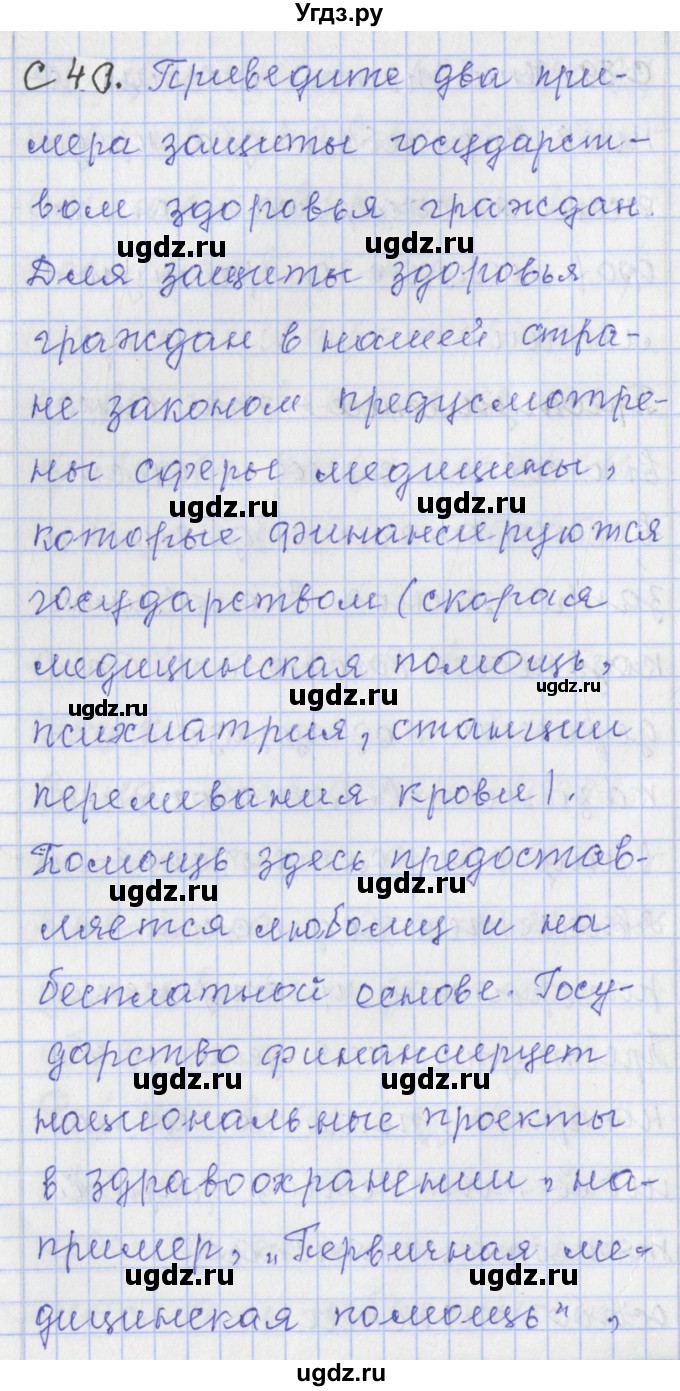 Угдз.ру
С 40. Приведите два при-
мера защиты государст-
вом здоровья граждан.
ugdz.ru ugdz.ru
Для защиты здоровья
граждан в нашей стра-
не законом предусмотре-
ны сферы медицины,
ugdz.ru ugdz.ru
которые финансируются
государством (скорая
медицинская помощь,
ugdz.ru ugdz.ru ugdz.ru
психиатрия, станции
переливания крови).
Помощь здесь предостав-
ugdz.ru ugdz.ru
ляется любому и на
бесплатной основе. Госу-
дарство финансирует
ugdz.ru ugdz.ru
национальные проекты
в здравоохранении, на-
пример, „Первичная ме-
ugdz.ru ugdz.ru
дицинская помощь",
ugdz.ru